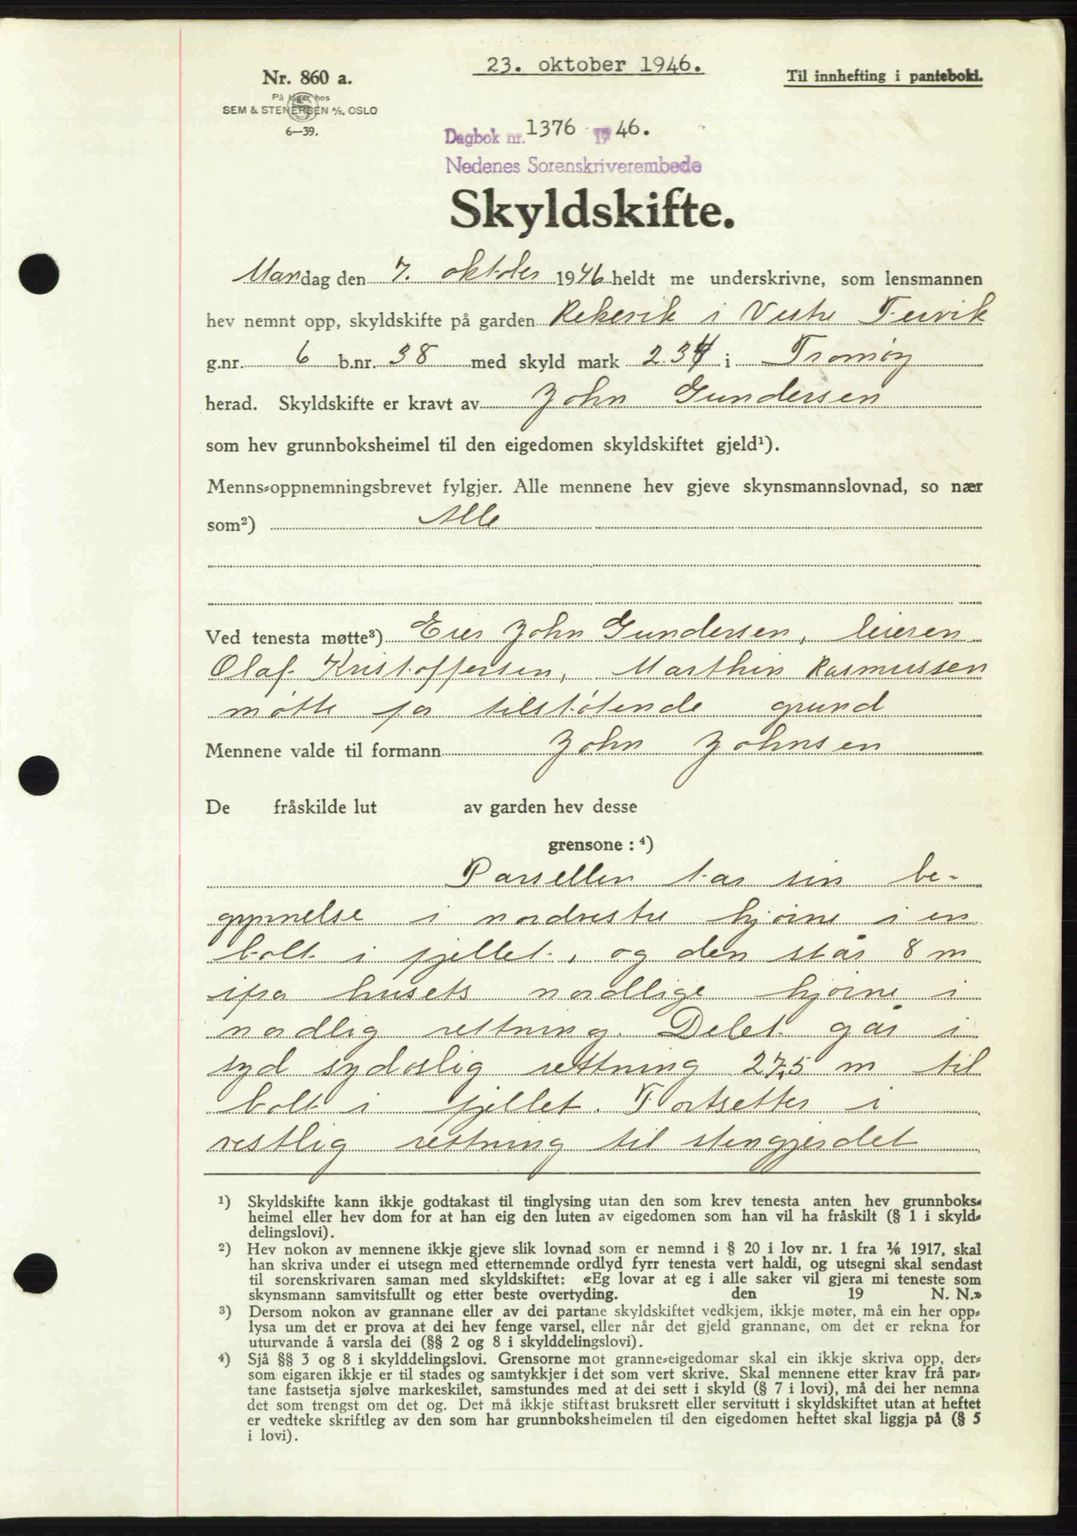 23. oktober 1946.
Nr. 860 a.
Til innhefting i pantebok.
På lager hos
SEM & STENERSEN A/S, OSLO
6—39.
Dagbok nr. 1376 19 46.
Nedenes Sorenskriverembede
Skyldskifte.
Mandag den 7. oktober 1946 heldt me underskrivne, som lensmannen
hev nemnt opp, skyldskifte på garden Rekevik i Vestre Tervik
g.nr. 6 b.nr. 38 med skyld mark 2.34 i Tromøy
herad. Skyldskifte er kravt av John Gundersen
som hev grunnboksheimel til den eigedomen skyldskiftet gjeld¹).
Menns-oppnemningsbrevet fylgjer. Alle mennene hev gjeve skynsmannslovnad, so nær
som²) Alle
Ved tenesta møtte³) Eier John Gundersen, leieren
Olaf Kristoffersen, Marthin Rasmussen
møtte for tilstøtende grund
Mennene valde til formann John Johnsen
De fråskilde lut av garden hev desse
grensone : ⁴)
Parsellen tar sin be-
gynnelse i nordvestre hjørne i en
bolt i fjellet, og den står 8 m
ifra husets nordlige hjørne i
nordlig rettning. Delet går i
syd sydøslig rettning 27,5 m til
bolt i fjellet. Fortsetter i
vestlig rettning til stengjerdet
¹) Skyldskifte kann ikkje godtakast til tinglysing utan den som krev tenesta anten hev grunnboks-
heimel eller hev dom for at han eig den luten av eigedomen som han vil ha fråskilt (§ 1 i skyld-
delingslovi).
²) Hev nokon av mennene ikkje gjeve slik lovnad som er nemnd i § 20 i lov nr. 1 fra 1/6 1917, skal
han skriva under ei utsegn med etternemnde ordlyd fyrr tenesta vert haldi, og utsegni skal sendast
til sorenskrivaren saman med skyldskiftet: «Eg lovar at eg i alle saker vil gjera mi teneste som
skynsmann samvitsfullt og etter beste overtyding. den 19 N. N.»
³) Dersom nokon av grannane eller av dei partane skyldskiftet vedkjem, ikkje møter, må ein her opp-
lysa um det er prova at dei hev fenge varsel, eller når det gjeld grannane, om det er rekna for
uturvande å varsla dei (§§ 2 og 8 i skylddelingslovi).
⁴) Sjå §§ 3 og 8 i skylddelingslovi. Grensorne mot granne-eigedomar skal ein ikkje skriva opp, der-
som eigaren ikkje er til stades og samtykkjer i det som vert skrive. Skal mennene etter krav frå par-
tane fastsetja sjølve markeskilet, samstundes med at dei sett i skyld (§ 7 i lovi), må dei her nemna
det som trengst om det og. Det må ikkje stiftast bruksrett eller servitutt i skyldskiftet utan at heftet
er vedteke skriftleg av den som har grunnboksheimelen til den eigedomen heftet skal liggja på (§ 5
i lovi).